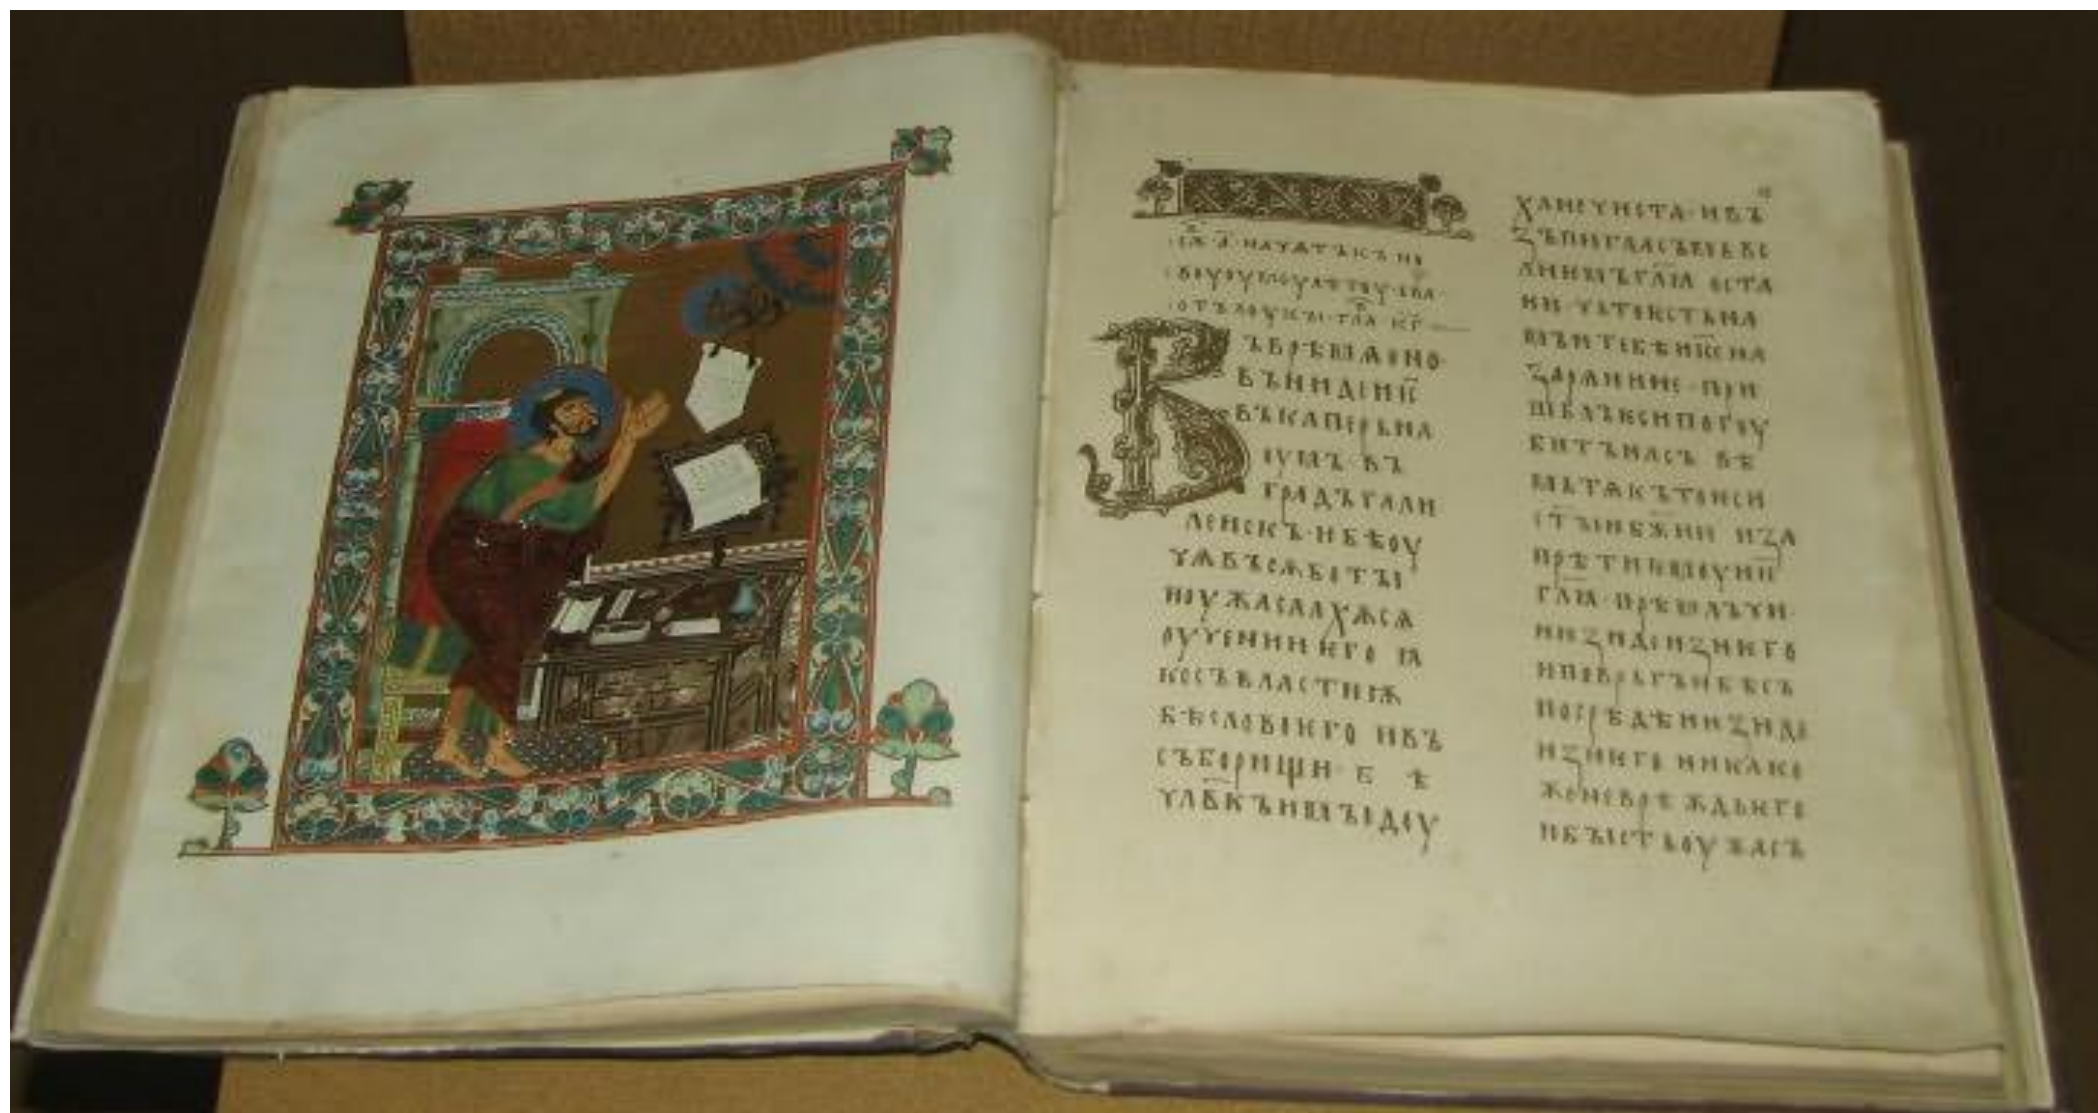 сѫ҃ · а҃ · начѧтъкъ но
воуоумоу лѣтоу · ева
отъ лоукы · гла к҃г
Въ врѣмѧ оно ·
въниде ис҃
въ каперьна
оумъ · въ
градъ гали
леискъ · и бѣ оу
чѧ въ сѫботы
и оужасаахѫсѧ
о учении ѥго ꙗ
ко съ властиѭ
бѣ слово ѥго и въ
съборищи · бѣ
чл҃вкъ имы доу
ха нечиста · и въ
зъпи гласъмь ве
лиѥмь гл҃ѧ оста
ни · чьто ѥсть на
мъ и тебѣ ис҃е на
зарѧнине · при
шьлъ ѥси погоу
битъ насъ вѣ
мь тѧ къто ѥси
ст҃ыи бж҃ии и за
прѣти ѥмоу ис҃
гл҃ѧ · прѣмлъчи ·
и изиди из него
и повръгъ и бѣсъ
посрѣдѣ и изиде
из него никако
же не врѣждь ѥго
и бысть оужасъ